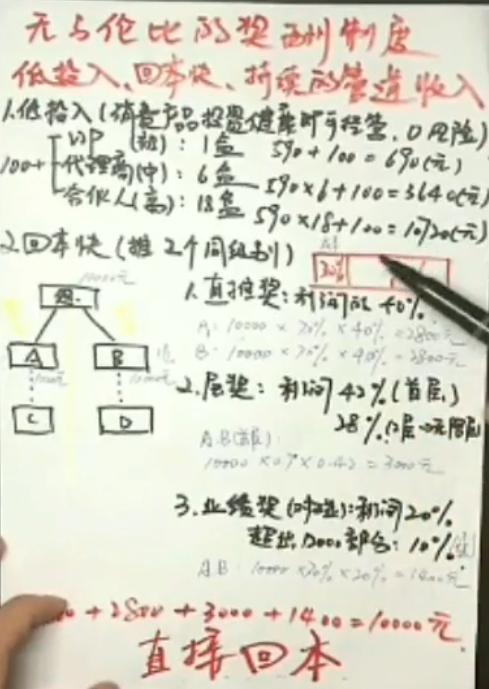 无与伦比的奖励制度
低投入、回本快、持续的管道收入
1.低投入(消费产品投资健康即可经营,0风险)
100+
VIP (初):1盒 590+100=690(元)
代理商(中):6盒 590×6+100=3640(元)
合伙人(高):18盒 590×18+100=10720(元)
2.回本快(推2个同级别)
10000元
30%
1.直推奖:利润的40%
A:10000×70%×40%=2800元
B:10000×70%×40%=2800元
A
B
10000元
10000元
C
D
2.层奖:利润42%(首层)
28%
A.B(首层):
10000×0.7×0.42=3000元
3.业绩奖(对碰):利润20%
超出 部分:10%
A.B:10000×70%×20%=1400元
+2800+3000+1400=10000元
直接回本